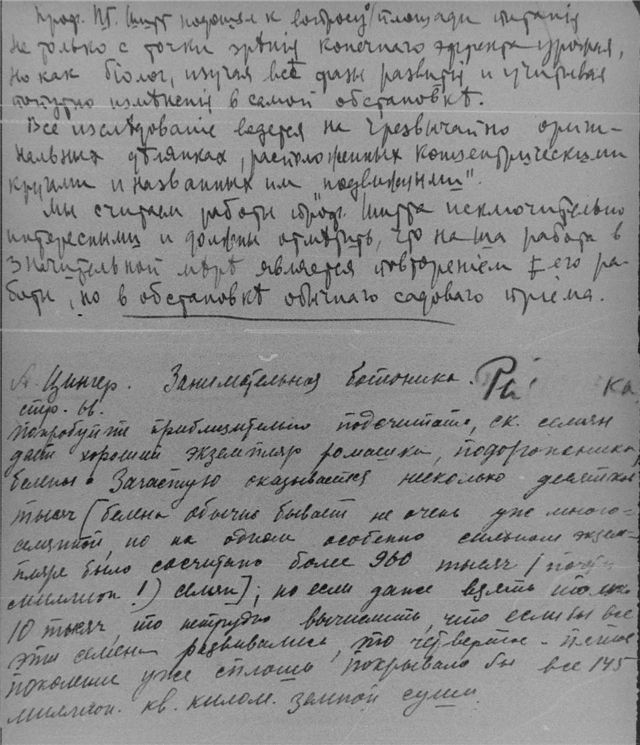 Проф. П.Г. Шитт подошел к вопросу о площади питанія
не только с точки зрѣнія конечнаго эффекта урожая,
но как біолог, изучая всѣ фазы развитія и учитывая
попутно измѣненія в самой обстановкѣ.
Все изслѣдованіе ведется на чрезвычайно ориги-
нальных дѣлянках, расположенных концентрическими
кругами и названных им "подвижными".
Мы считаем работы проф. Шитта исключительно
интересными и должны отмѣтить, что наша работа в
значительной мѣрѣ является повтореніем его ра-
боты, но в обстановкѣ обычнаго садоваго пріема.
А. Цингер. Занимательная ботаника.
стр. 66.
попробуйте приблизительно подсчитать, ск. семян
дает хороший экземпляр ромашки, подорожника,
белены. Зачастую оказывается несколько десятков
тысяч [белена обычно бывает не очень уже много-
семянной, но на одном особенно сильном экзем-
пляре было сосчитано более 960 тысяч (почти
миллион!) семян]; но если даже взять только
10 тысяч, то нетрудно вычислить, что если бы все
эти семена развивались, то четвертое - пятое
поколение уже сплошь покрывало бы все 145
миллион. кв. килом. земной суши.